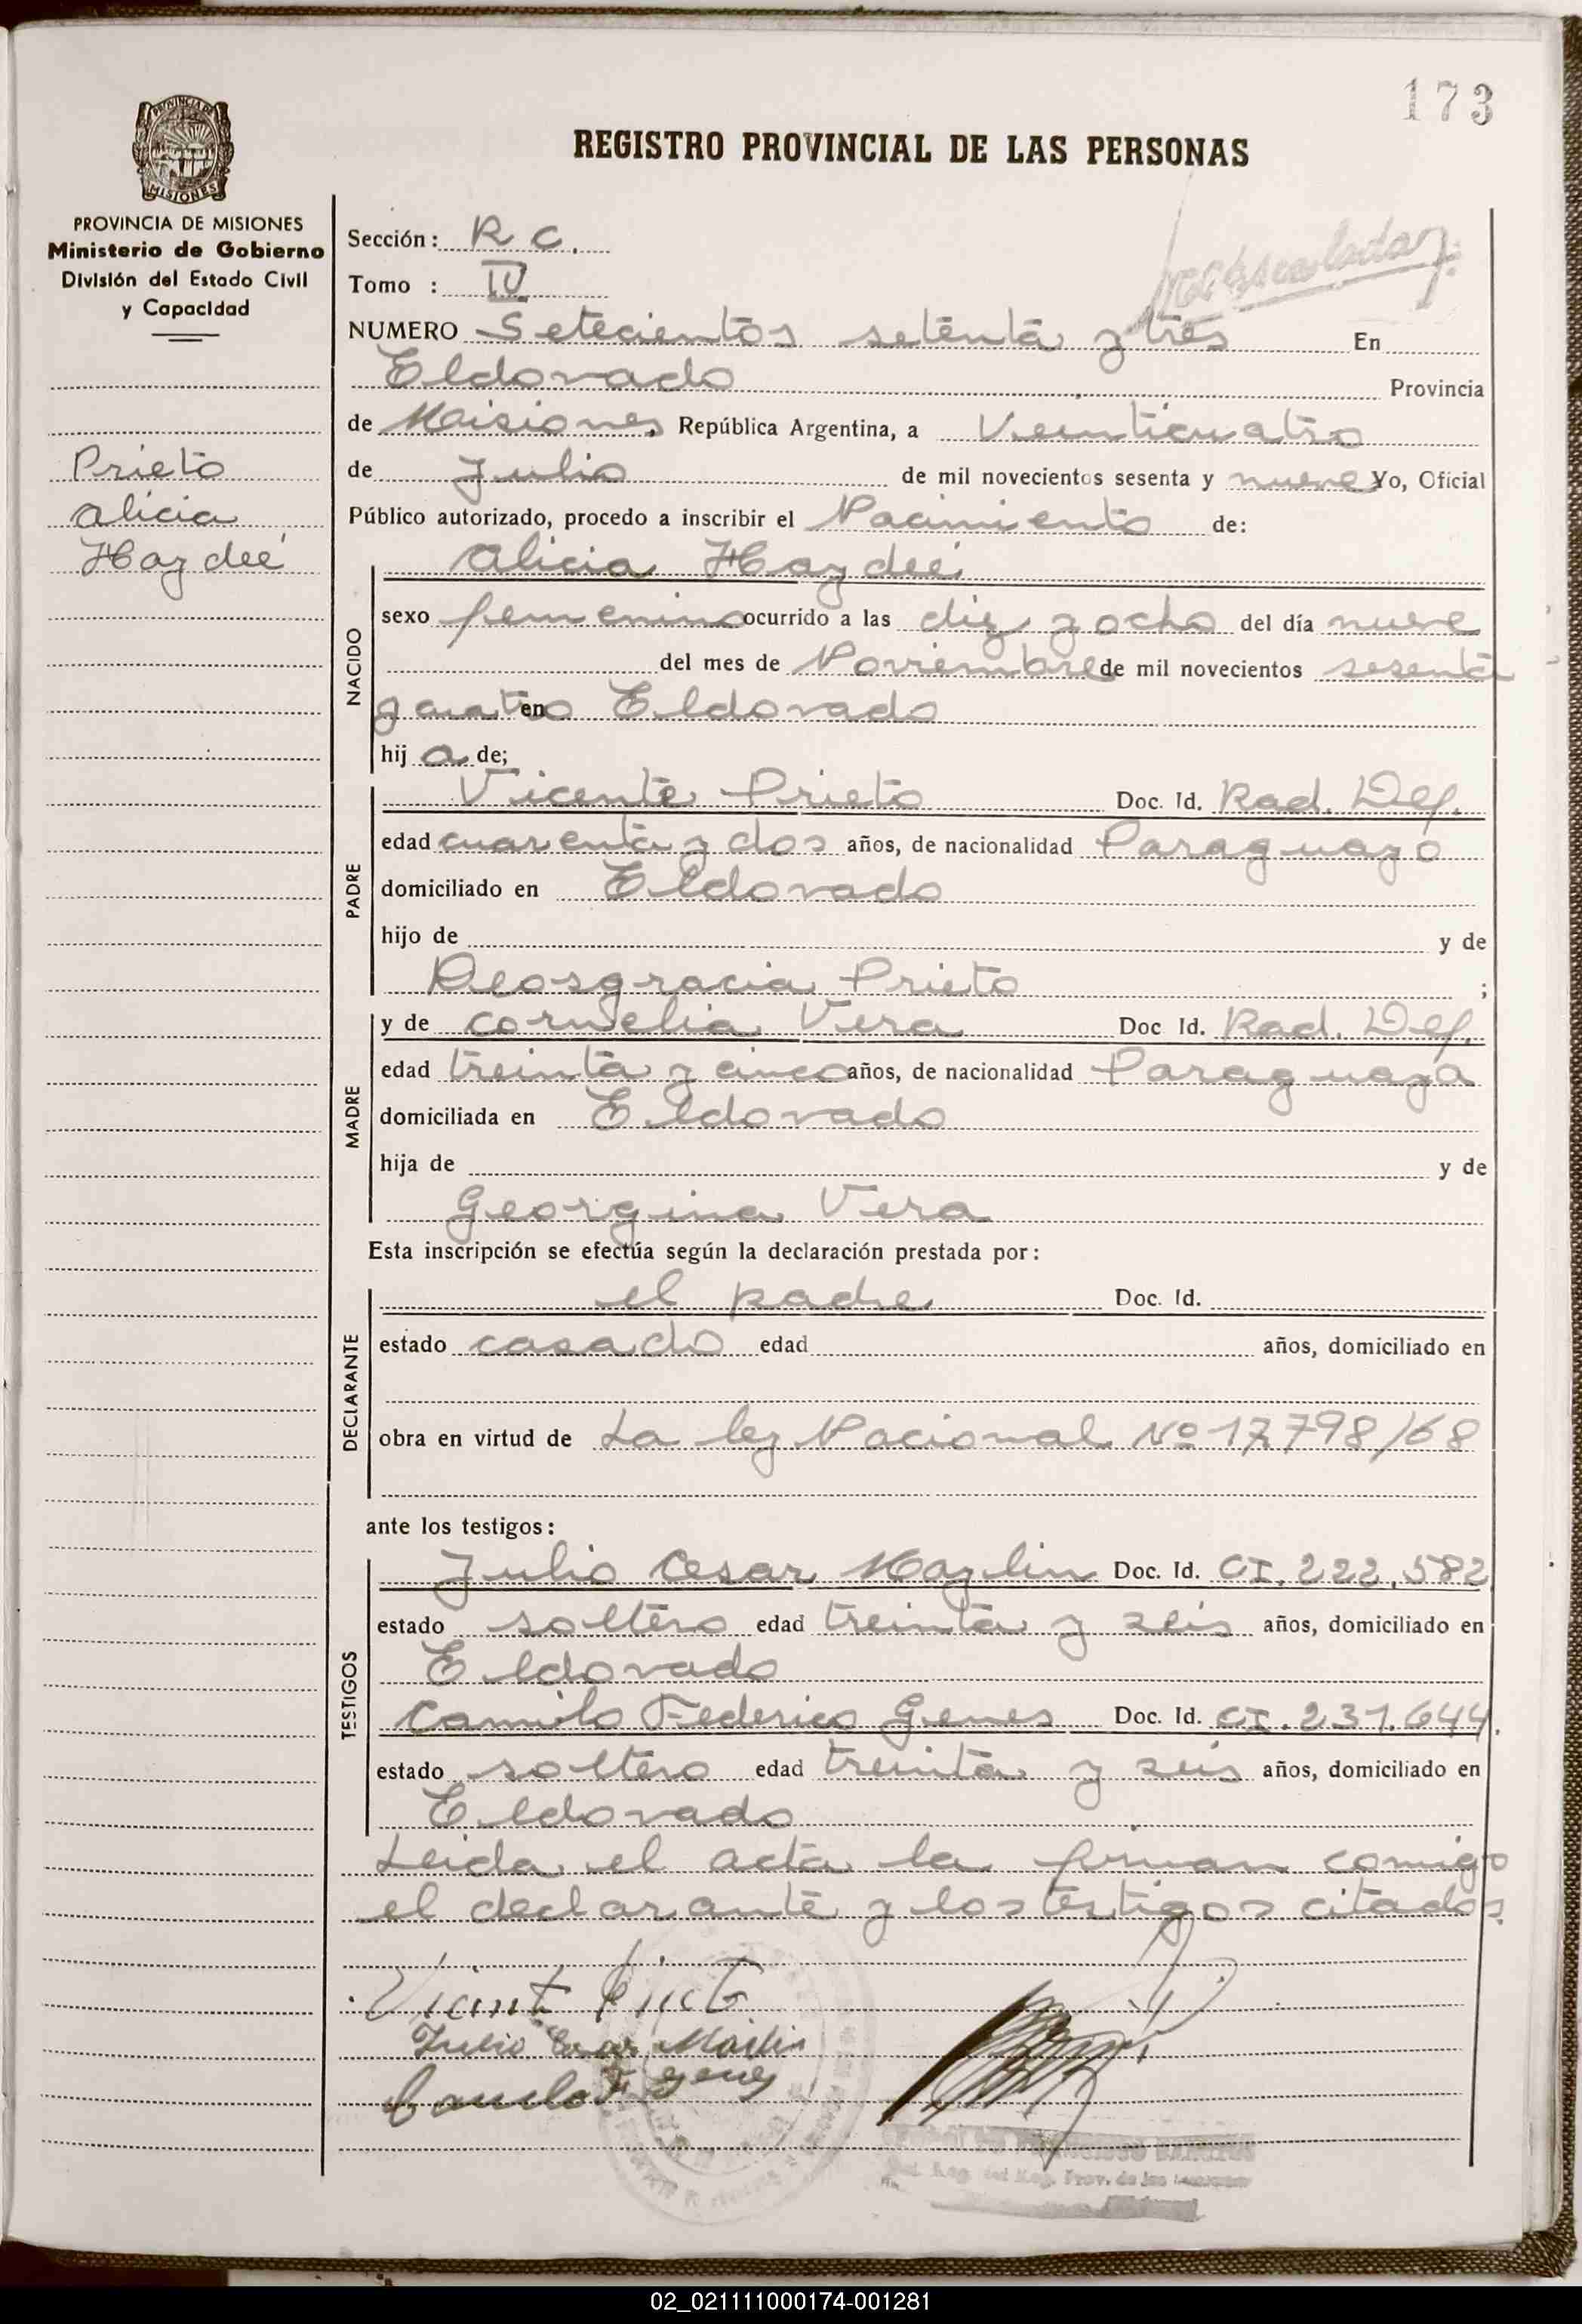 173
REGISTRO PROVINCIAL DE LAS PERSONAS
PROVINCIA DE MISIONES
MISIONES
PROVINCIA DE MISIONES
Ministerio de Gobierno
División del Estado Civil
y Capacidad
Prieto
Alicia
Haydeé
Sección: R C.
Tomo : IV
NUMERO Setecientos setenta y tres En
Eldorado Provincia
de Misiones, República Argentina, a Veinticuatro
de Julio de mil novecientos sesenta y nueve Yo, Oficial
Público autorizado, procedo a inscribir el Nacimiento de:
NACIDO
Alicia Haydeé
sexo femenino ocurrido a las diez y ocho del día nueve
del mes de Noviembre de mil novecientos sesenta
y cuatro en Eldorado
hij a de;
PADRE
Vicente Prieto Doc. Id. Rad. Def.
edad cuarenta y dos años, de nacionalidad Paraguayo
domiciliado en Eldorado
hijo de y de
Deosgracia Prieto ;
MADRE
y de Cornelia Vera Doc Id. Rad. Def.
edad treinta y cinco años, de nacionalidad Paraguaya
domiciliada en Eldorado
hija de y de
Georgina Vera
Esta inscripción se efectúa según la declaración prestada por:
DECLARANTE
el padre Doc. Id.
estado casado edad años, domiciliado en
obra en virtud de La ley Nacional Nº 17798/68
ante los testigos:
TESTIGOS
Julio Cesar Maylin Doc. Id. CI. 222.582
estado soltero edad treinta y seis años, domiciliado en
Eldorado
Camilo Federico Genes Doc. Id. CI. 231.644.
estado soltero edad treinta y seis años, domiciliado en
Eldorado
Leida el acta la firman comigo
el declarante y los testigos citados.
Vicente Prieto
Julio Cesar
Camilo F Genes
02_021111000174-001281